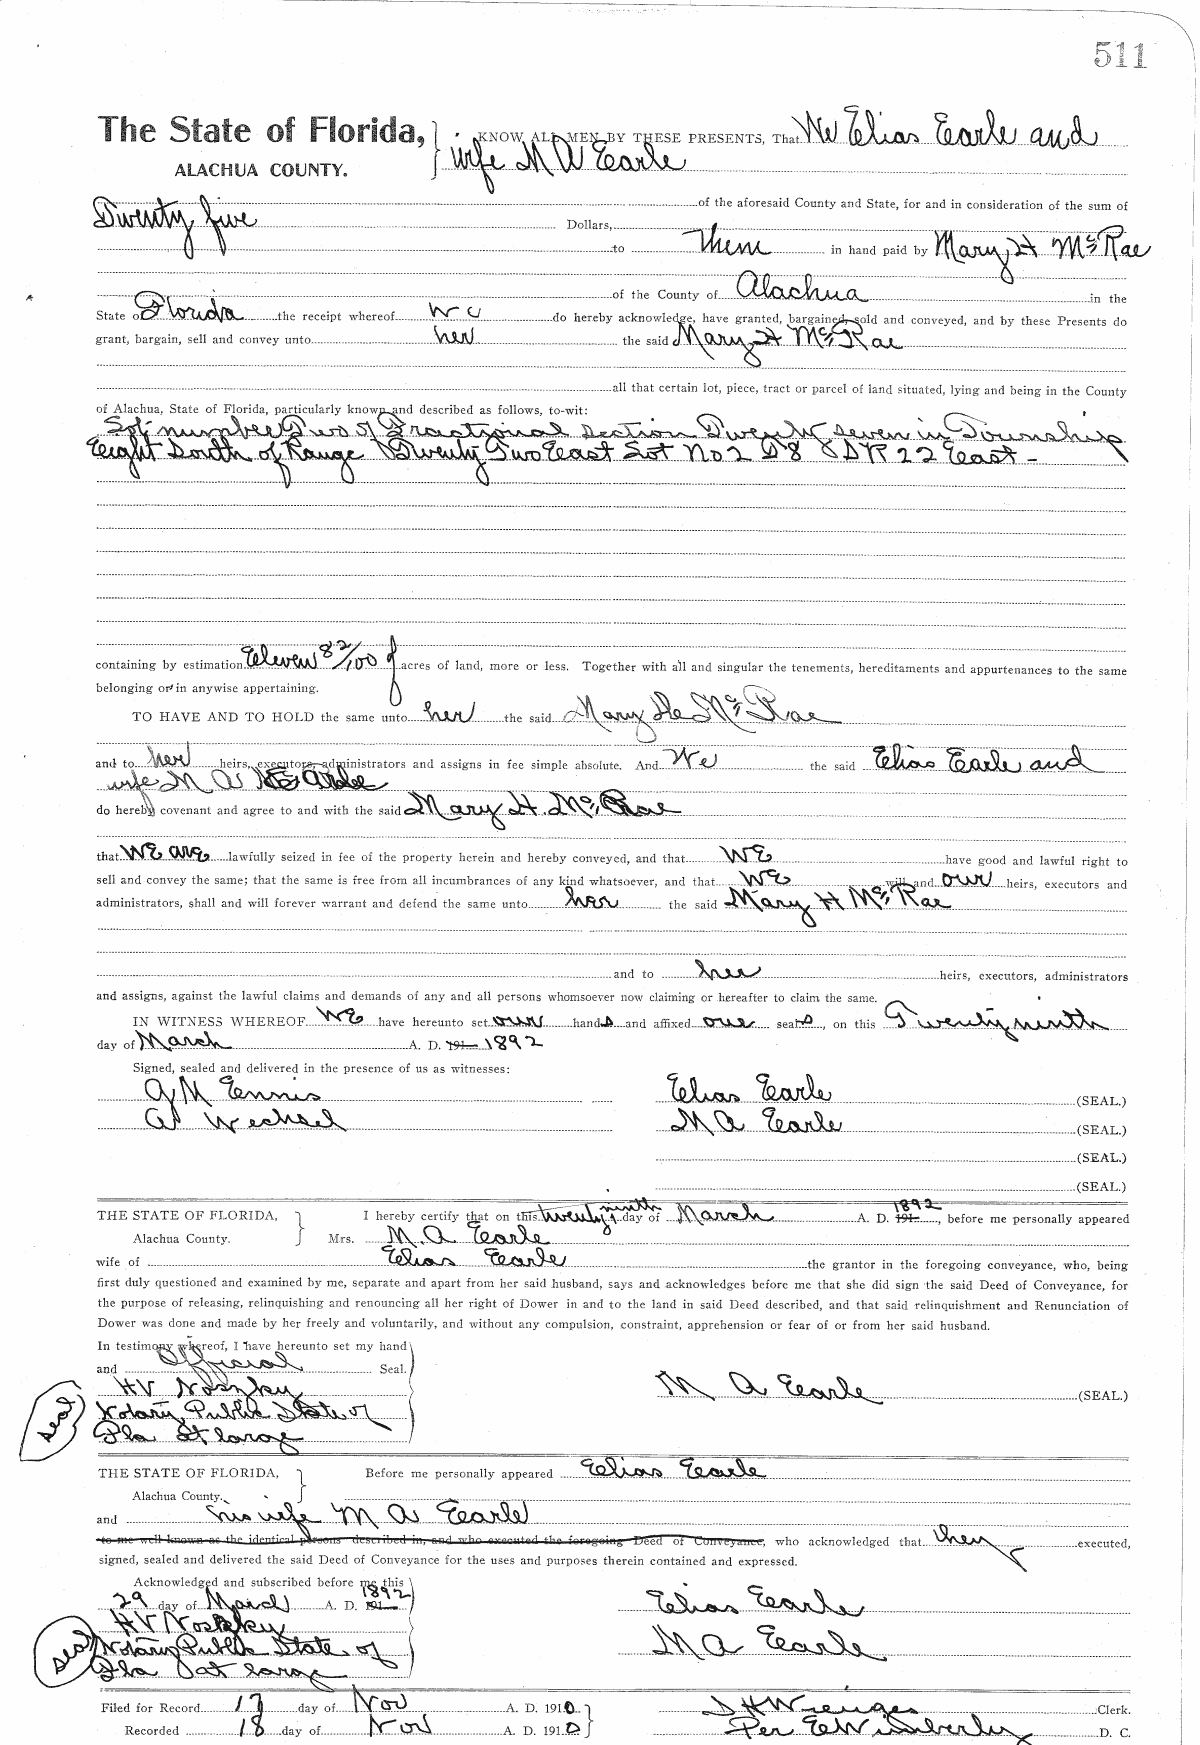 511
The State of Florida, KNOW ALL MEN BY THESE PRESENTS, That We Elias Earle and
ALACHUA COUNTY. wife M A Earle
of the aforesaid County and State, for and in consideration of the sum of
Twenty five Dollars,
to Them in hand paid by Mary H McRae
of the County of Alachua in the
State of Florida the receipt whereof we do hereby acknowledge, have granted, bargained, sold and conveyed, and by these Presents do
grant, bargain, sell and convey unto her the said Mary H McRae
all that certain lot, piece, tract or parcel of land situated, lying and being in the County
of Alachua, State of Florida, particularly known and described as follows, to-wit:
Lot number Two of Fractional section Twenty seven in Township
Eight South of Range Twenty Two East Lot No 2 R 22 East -
containing by estimation Eleven 82/100 acres of land, more or less. Together with all and singular the tenements, hereditaments and appurtenances to the same
belonging or in anywise appertaining.
TO HAVE AND TO HOLD the same unto her the said Mary H McRae
and to her heirs, executors, administrators and assigns in fee simple absolute. And We the said Elias Earle and
wife M A Earle
do hereby covenant and agree to and with the said Mary H. McRae
that we are lawfully seized in fee of the property herein and hereby conveyed, and that we have good and lawful right to
sell and convey the same; that the same is free from all incumbrances of any kind whatsoever, and that we will and our heirs, executors and
administrators, shall and will forever warrant and defend the same unto her the said Mary H McRae
and to her heirs, executors, administrators
and assigns, against the lawful claims and demands of any and all persons whomsoever now claiming or hereafter to claim the same.
IN WITNESS WHEREOF we have hereunto set our hands and affixed our seals, on this Twenty ninth
day of March A. D. 191 1892
Signed, sealed and delivered in the presence of us as witnesses:
G M Ennis Elias Earle (SEAL.)
A Wechsel M A Earle (SEAL.)
(SEAL.)
(SEAL.)
THE STATE OF FLORIDA, I hereby certify that on this twenty ninth day of March A. D. 191 1892, before me personally appeared
Alachua County. Mrs. M. A Earle
wife of Elias Earle the grantor in the foregoing conveyance, who, being
first duly questioned and examined by me, separate and apart from her said husband, says and acknowledges before me that she did sign the said Deed of Conveyance, for
the purpose of releasing, relinquishing and renouncing all her right of Dower in and to the land in said Deed described, and that said relinquishment and Renunciation of
Dower was done and made by her freely and voluntarily, and without any compulsion, constraint, apprehension or fear of or from her said husband.
In testimony whereof, I have hereunto set my hand
and official Seal.
HV M A Earle (SEAL.)
Seal Notary Public State of
Fla at large
THE STATE OF FLORIDA, Before me personally appeared Elias Earle
Alachua County.
and his wife M A Earle
to me well known as the identical persons described in, and who executed the foregoing Deed of Conveyance, who acknowledged that they executed,
signed, sealed and delivered the said Deed of Conveyance for the uses and purposes therein contained and expressed.
Acknowledged and subscribed before me this
29 day of March A. D. 191 1892 Elias Earle
HV M A Earle
Seal Notary Public State of
Fla at large
Filed for Record 17 day of Nov A. D. 1910 Clerk.
Recorded 18 day of Nov A. D. 1910 Per E Wimberly D. C.